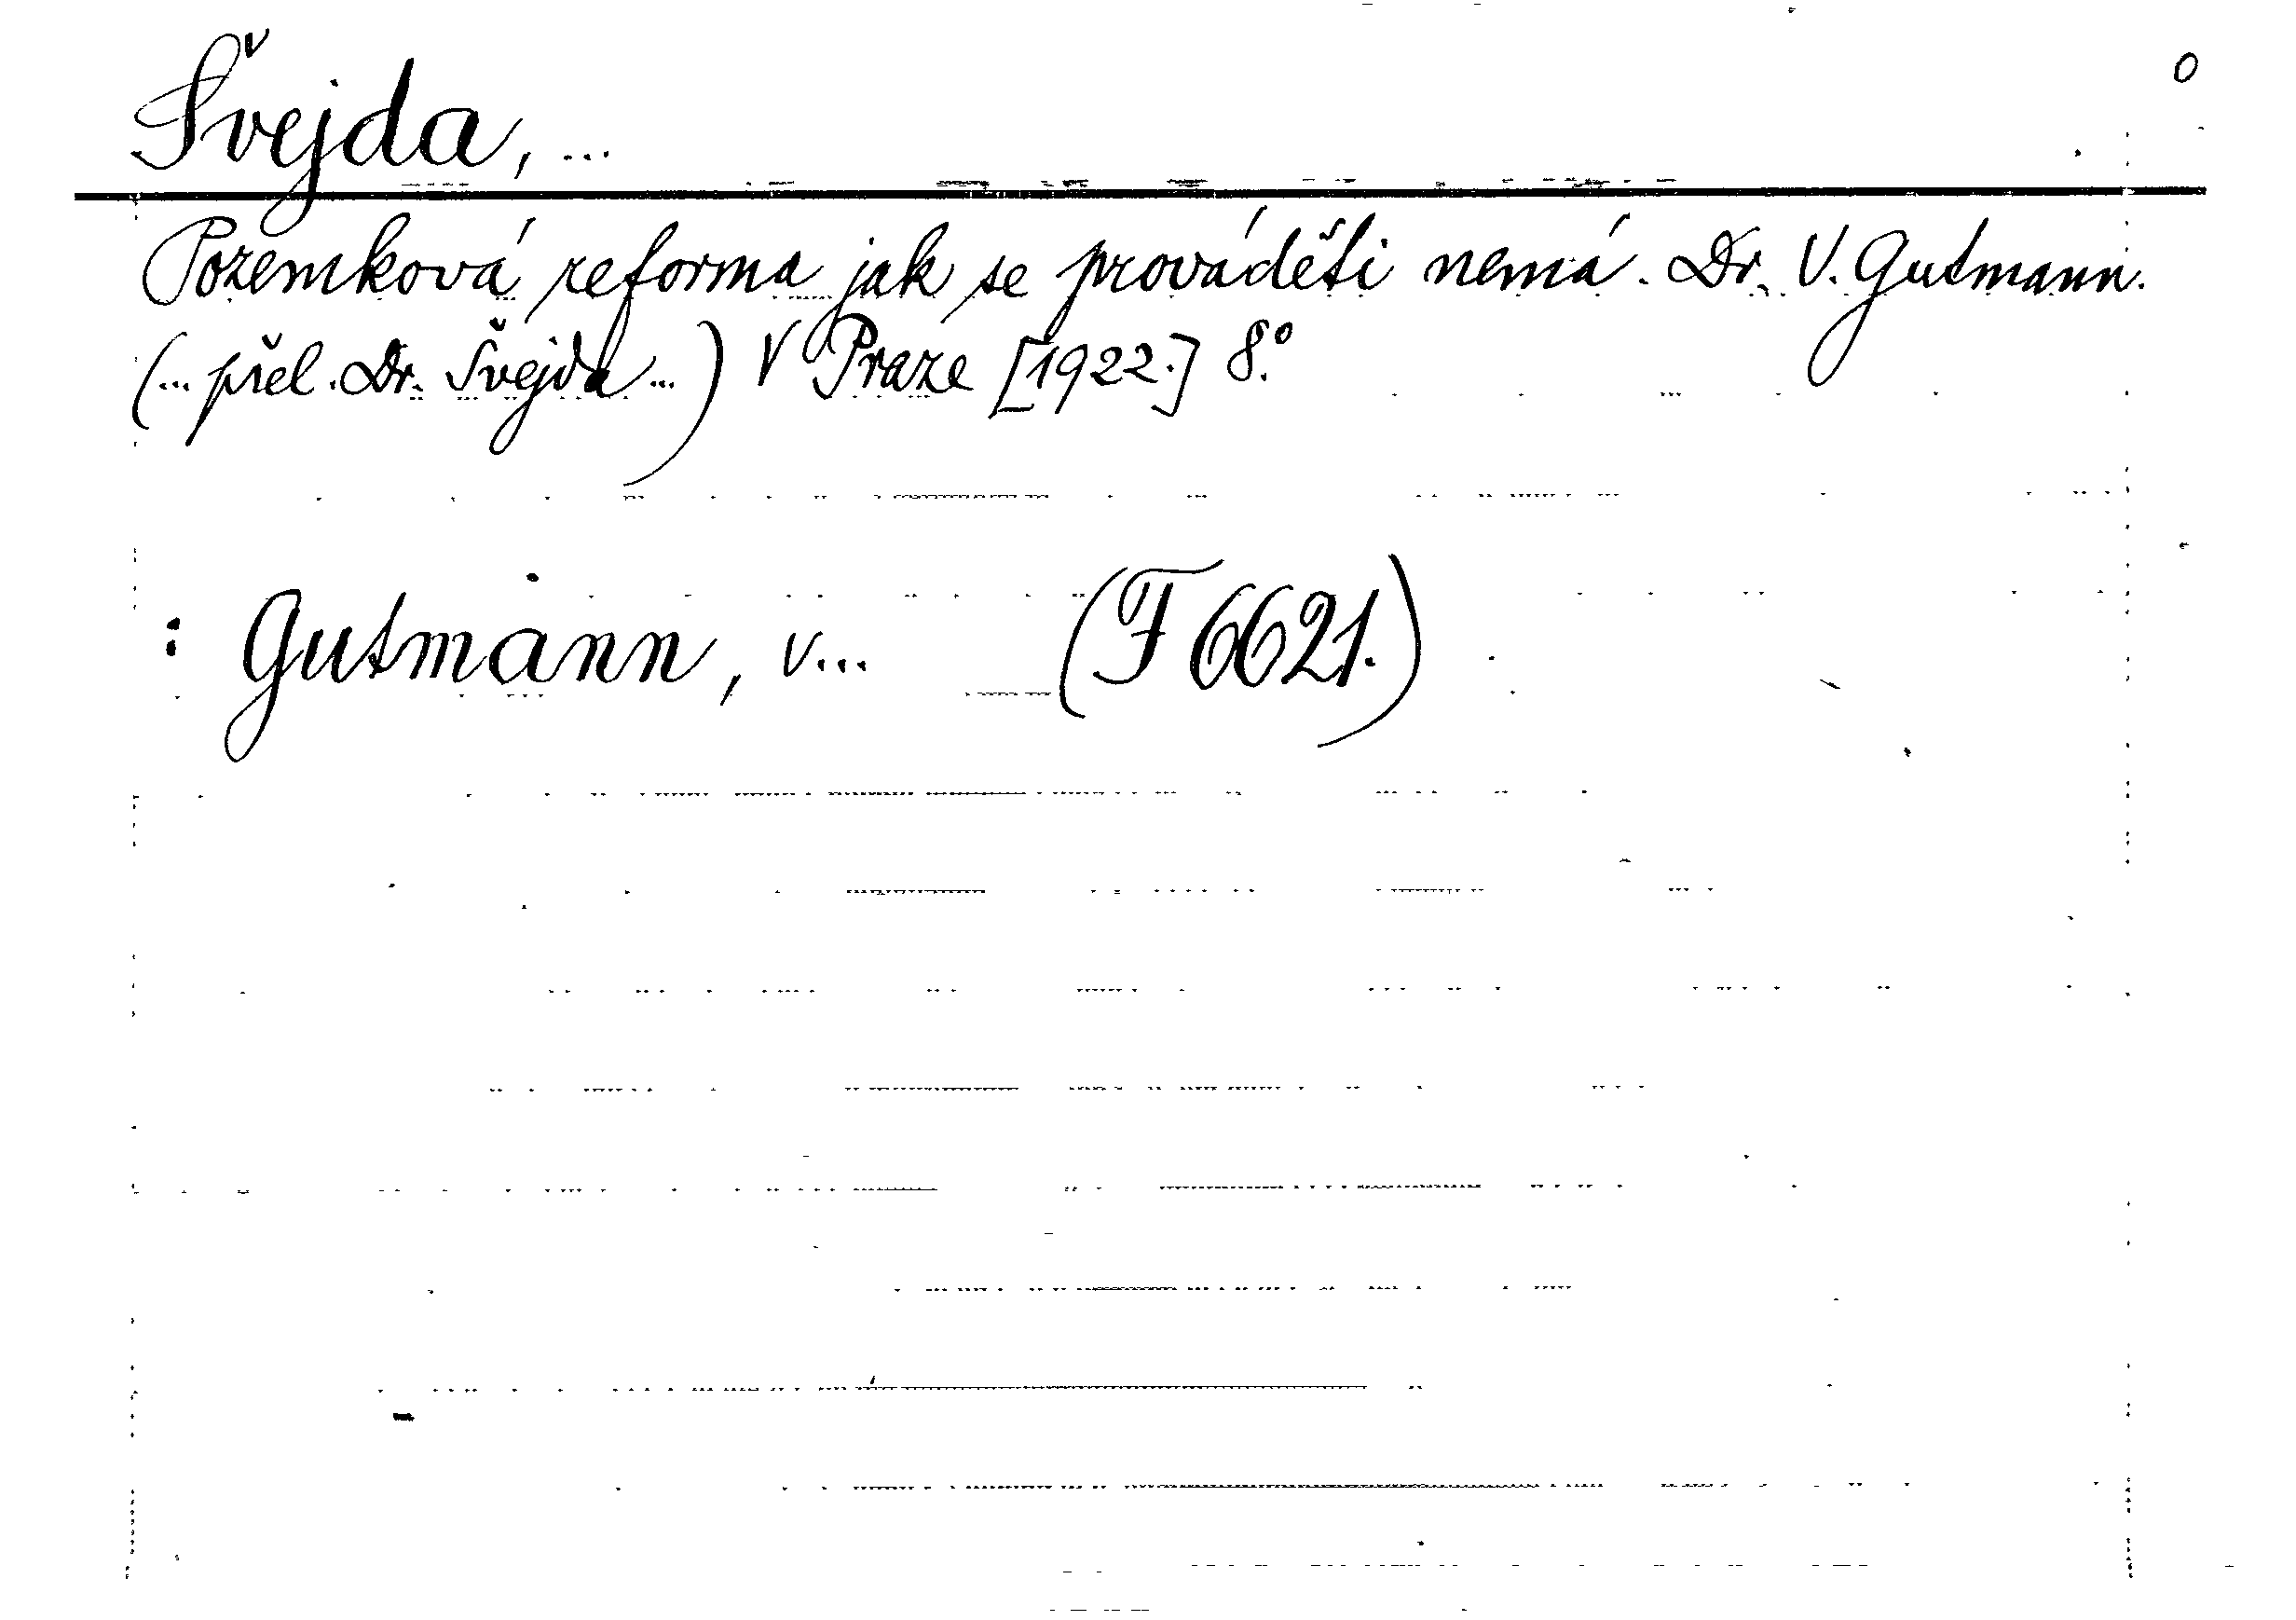 o
Švejda, ...
Pozemková reforma jak se prováděti nemá. Dr. V. Gutmann.
(... přel. Dr. Švejda ...) V Praze [1922.] 8.°
: Gutmann, V... (F 6621.)